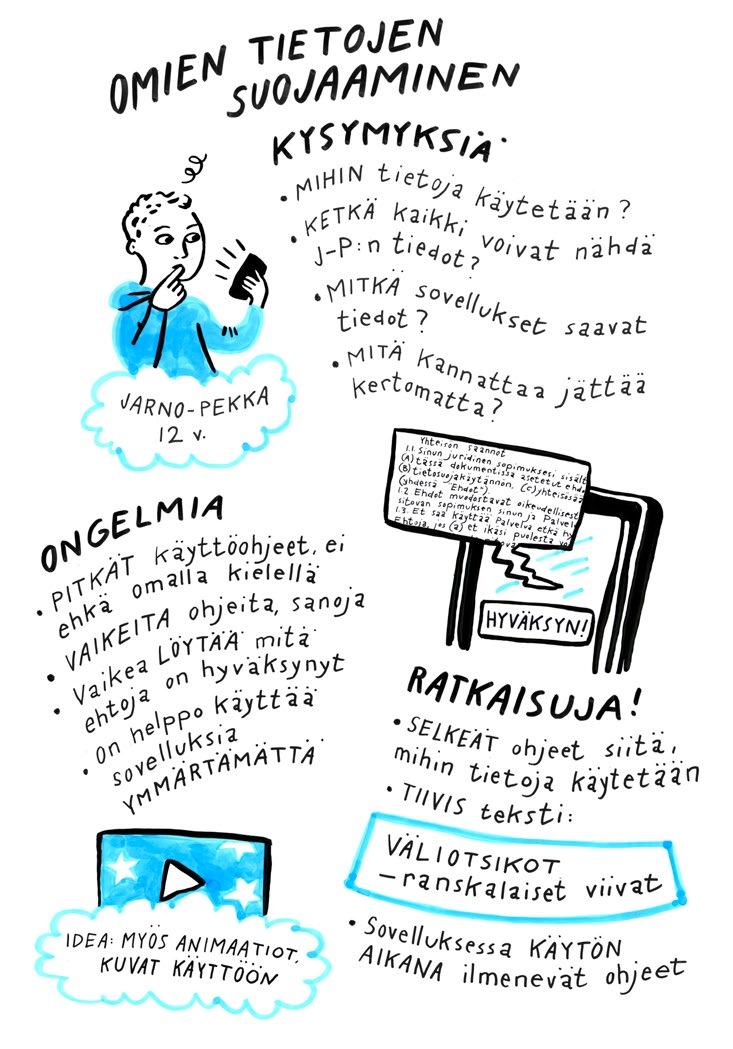 OMIEN TIETOJEN
SUOJAAMINEN
KYSYMYKSIÄ
• MIHIN tietoja käytetään?
• KETKÄ kaikki voivat nähdä
J-P:n tiedot?
• MITKÄ sovellukset saavat
tiedot?
• MITÄ kannattaa jättää
kertomatta?
JARNO-PEKKA
12 v.
Yhteisön säännöt
1.1. Sinun juridinen sopimuksesi sisält
(A) tässä dokumentissa asetetut ehdo
(B) tietosuojakäytännön, (c) yhteisösää
(yhdessä "Ehdot").
1.2 Ehdot muodostavat oikeudellisest
sitovan sopimuksen sinun ja Palvel
1.3. Et saa käyttää Palvelua etkä hy
Ehtoja, jos (a) et ikäsi puolesta vo
HYVÄKSYN!
ONGELMIA
• PITKÄT käyttöohjeet, ei
ehkä omalla kielellä
• VAIKEITA ohjeita, sanoja
• Vaikea LÖYTÄÄ mitä
ehtoja on hyväksynyt
• on helppo käyttää
sovelluksia
YMMÄRTÄMÄTTÄ
RATKAISUJA!
• SELKEÄT ohjeet siitä,
mihin tietoja käytetään
• TIIVIS teksti:
VÄLIOTSIKOT
– ranskalaiset viivat
• Sovelluksessa KÄYTÖN
AIKANA ilmenevät ohjeet
IDEA: MYÖS ANIMAATIOT,
KUVAT KÄYTTÖÖN